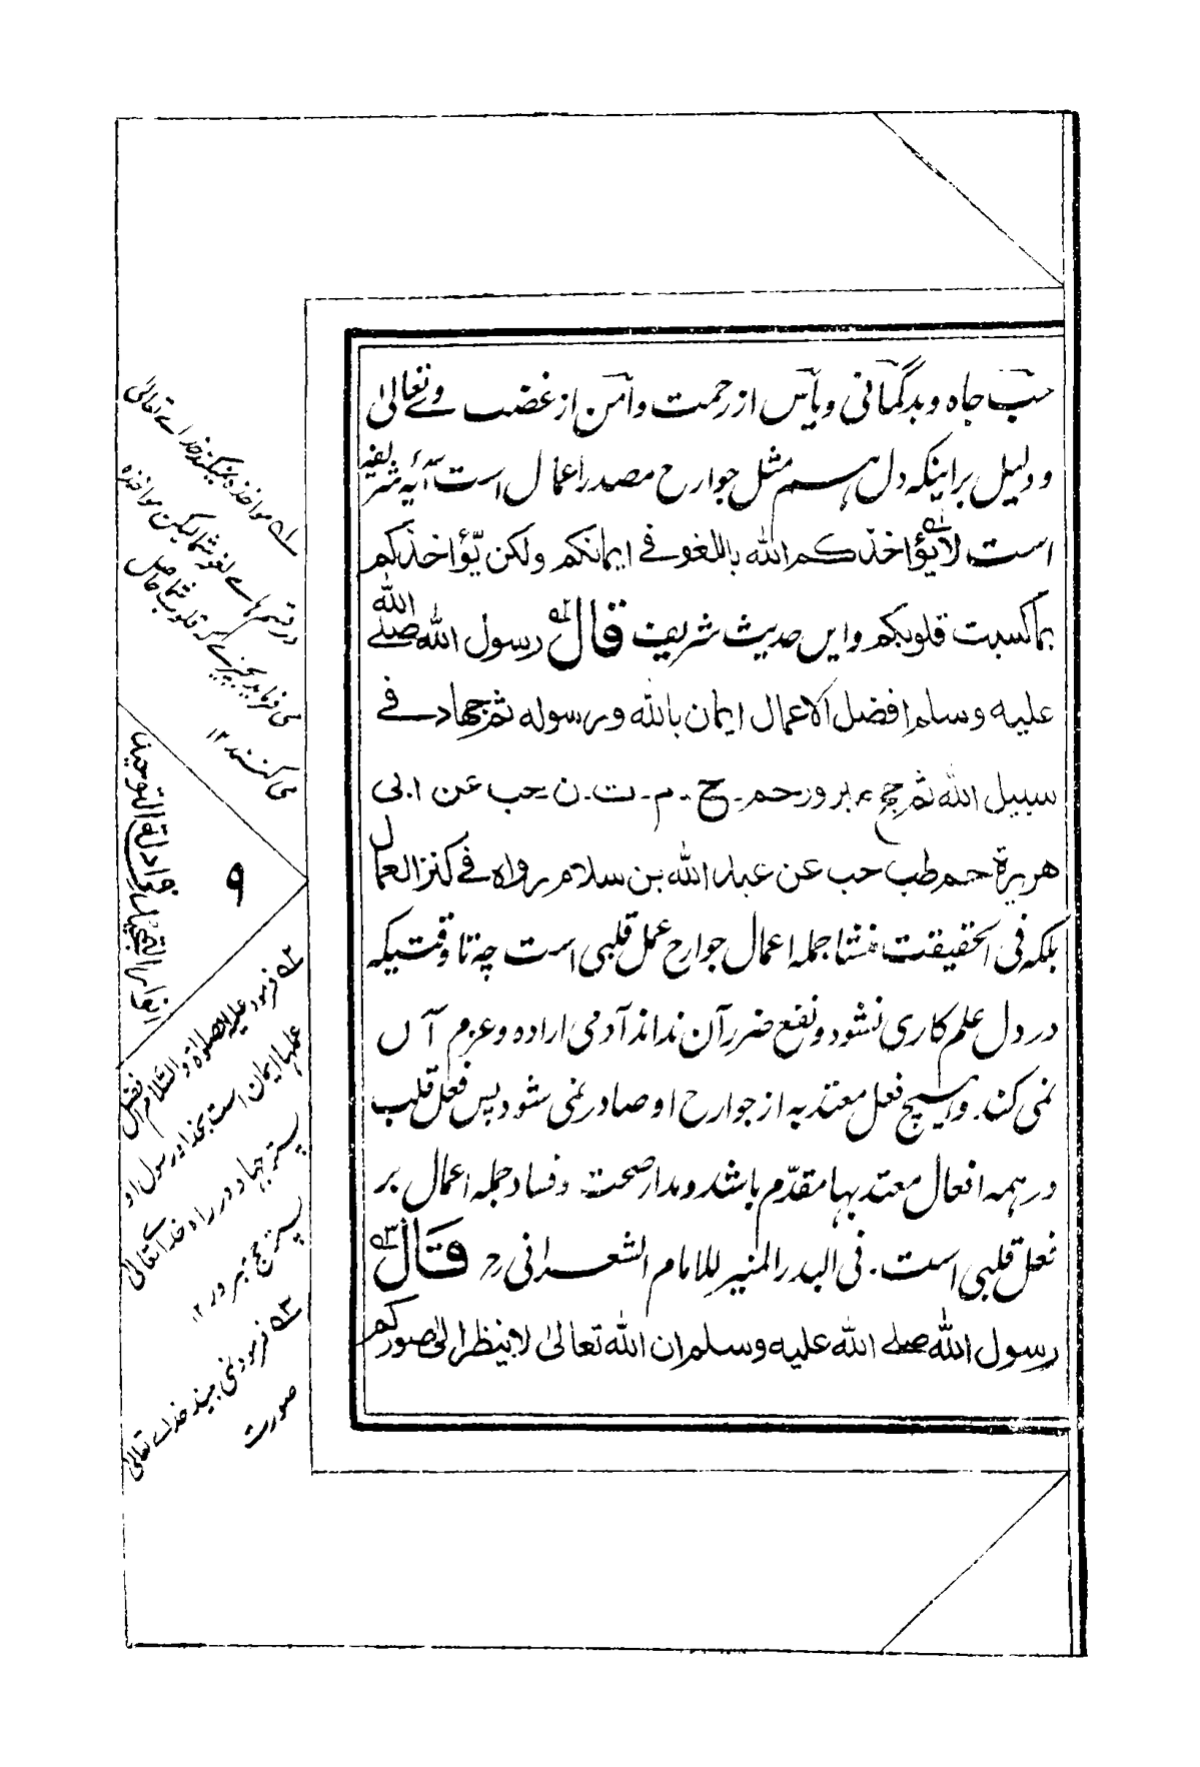 حبّ جاه و بدگمانی و یأس از رحمت و أمن از غضب وے تعالیٰ
و دلیل بر اینکه دل هم مثل جوارح مصدر اعمال است آیۂ شریفه
است لا یؤاخذکم الله باللغو فے ایمانکم ولکن یّؤاخذکم
بما کسبت قلوبکم و این حدیث شریف قال رسول الله صلے الله
علیه وسلم افضل الاعمال ایمان بالله و رسوله ثم جهاد فے
سبیل الله ثم حج مبرور حم - خ - م - ت - ن حب عن ابی
هریرة حم طب حب عن عبد الله بن سلام رواه فے کنز العمال
بلکه فی الحقیقت منشا جمله اعمال جوارح عمل قلبی است چه تا وقتیکه
در دل علم کاری نشود و نفع ضرر آن نداند آدمی اراده و عزم آں
نمی کند. و هیچ فعل معتد به از جوارح او صادر نمی شود پس فعل قلب
در همه افعال معتد بها مقدّم باشد و مدار صحت و فساد جمله اعمال بر
فعل قلبی است. فی البدر المنیر للامام الشعرانی رح قَالَ
رسول الله صلے الله علیه وسلم ان الله تعالیٰ لا ینظر الیٰ صورکم
لـه مواخذه نمیکند خداے تعالیٰ
در قسم هاے لغو شما لیکن مواخذه
می فرماید بچیزے که قلوب شما حاصل
می کنند ۱۲
ادلة التوحید
۹
۲ـه فرمود علیه الصلوٰة والسّلام افضل
عملها ایمان است بخدا و رسول او
پستر جهاد در راه خداے تعالیٰ
پستر حج مبرور ۱۲
۳ـه فرمود نمی بیند خداے تعالیٰ
صورت